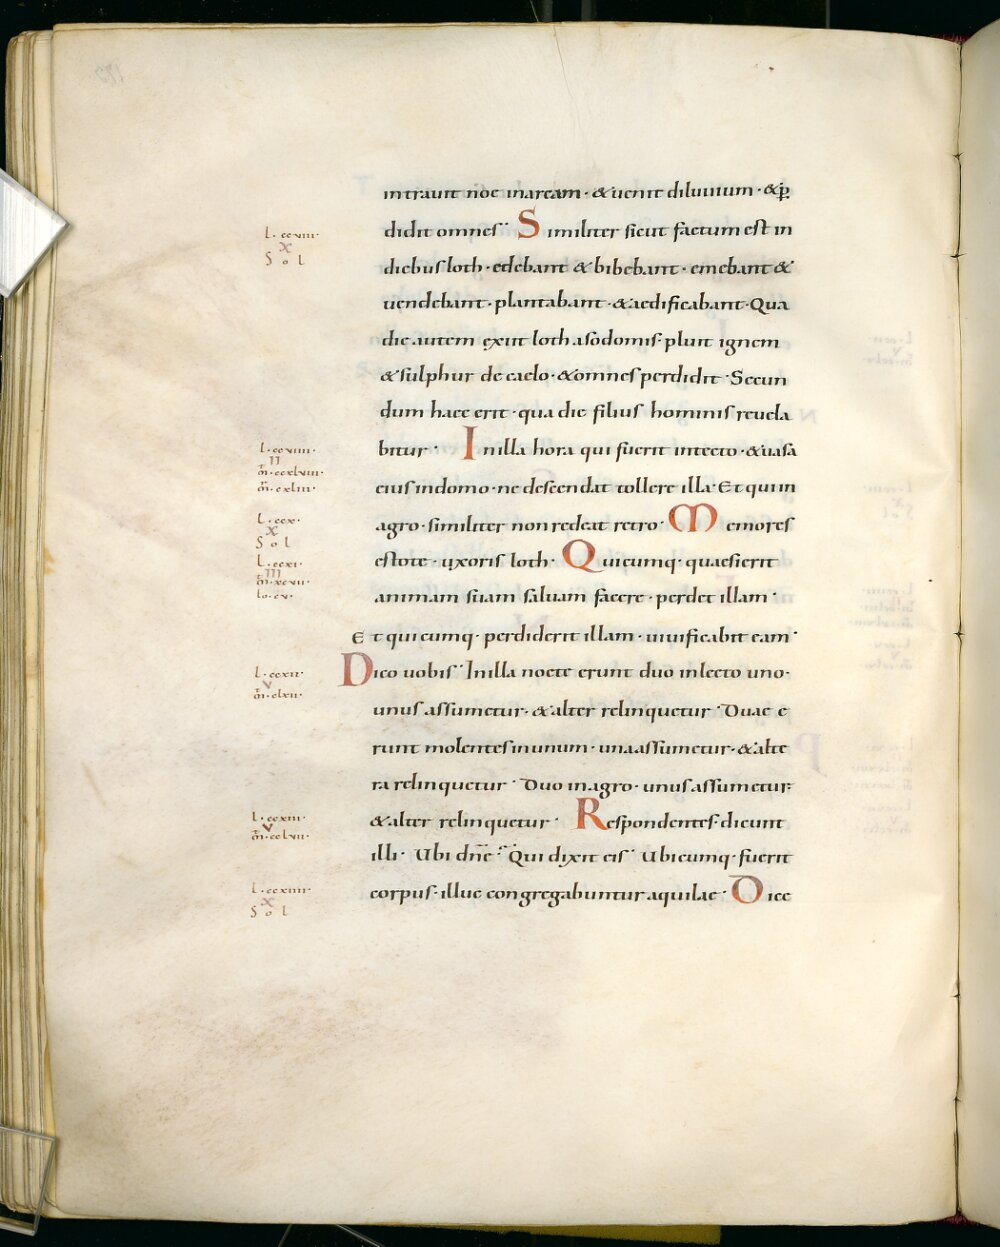 intrauit noe inarcam · & uenit diluuium · & p̱
didit omnes·· Similiter sicut factum est in
diebus loth · edebant & bibebant · emebant &
uendebant · plantabant · & aedificabant · Qua
die autem exiit loth a sodomis · pluit ignem
& sulphur de caelo · & omnes perdidit · Secun
dum haec erit · qua die filius hominis reuela
bitur · In illa hora qui fuerit intecto · & uasa
eius indomo · ne descendat tollere illa · Et qui in
agro · similiter non redeat retro · Memores
estote · uxoris loth · Quicumq· quaesierit
animam suam saluam facere · perdet illam ·
Et quicumq· perdiderit illam · uiuificabit eam ·
Dico uobis·· In illa nocte erunt duo inlecto uno ·
unus assumetur · & alter relinquetur · Duae e
runt molentes inunum · una assumetur · & alte
ra relinquetur · Duo inagro · unus assumetur
& alter relinquetur · Respondentes dicunt
illi · Ubi dn̄e · Qui dixit eis·· Ubicumq· fuerit
corpus · illuc congregabuntur aquilae · Dice
L · ccviii ·
X
S o L
L · ccviiii ·
II
m̄ · ccxlviii ·
m̄ · cxliii ·
L · ccx ·
X
S o L
L · ccxi ·
III
m̄ · xcvii ·
Io · cv ·
L · ccxii ·
V
m̄ · clxii ·
L · ccxiii ·
V
m̄ · cclvii ·
L · ccxiiii ·
X
S o L